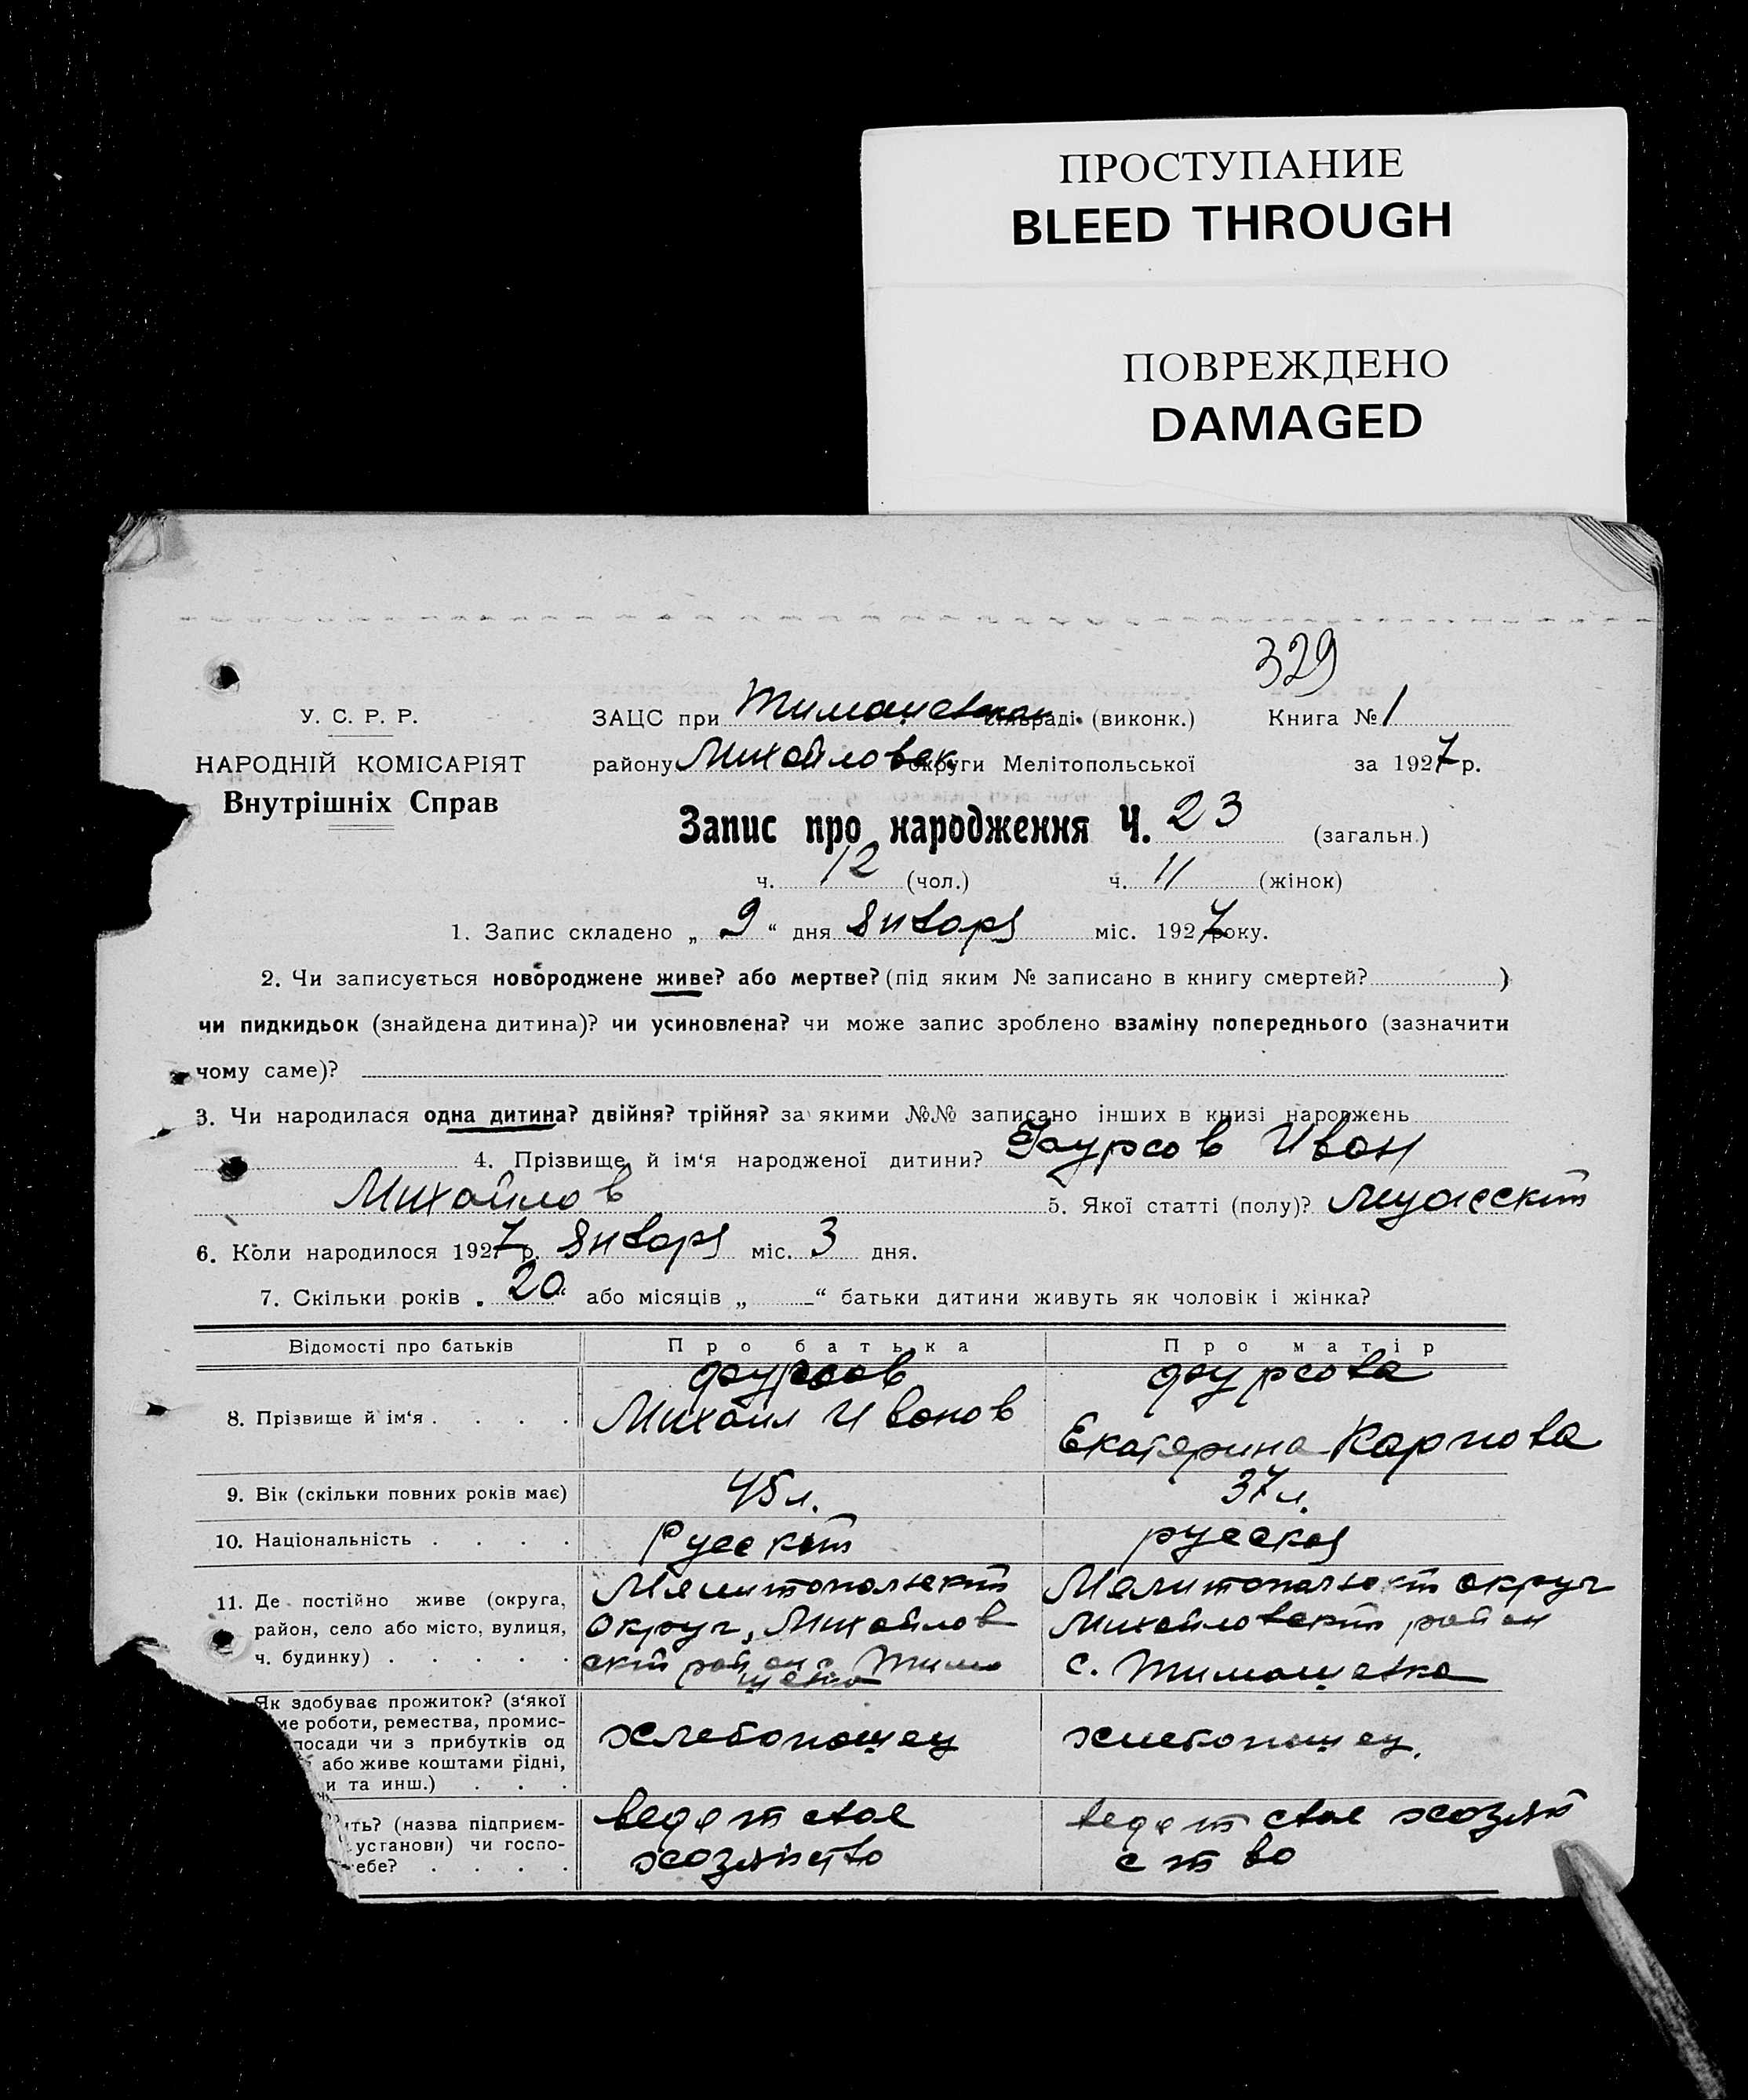 ПРОСТУПАНИЕ
BLEED THROUGH
ПОВРЕЖДЕНО
DAMAGED
329
У. С. Р. Р.
НАРОДНІЙ КОМІСАРІЯТ
Внутрішніх Справ
ЗАЦС при Тимашевкои сільраді (виконк.) Книга № 1
району Михайловск. округи Мелітопольської за 1927 р.
Запис про народження Ч. 23 (загальн.)
ч. 12 (чол.) ч. 11 (жінок)
1. Запис складено „ 9 “ дня Января міс. 1927 року.
2. Чи записується новороджене живе? або мертве? (під яким № записано в книгу смертей? )
чи пидкидьок (знайдена дитина)? чи усиновлена? чи може запис зроблено взаміну попереднього (зазначити
чому саме)?
3. Чи народилася одна дитина? двійня? трійня? за якими №№ записано інших в книзі народжень
4. Прізвище й ім‘я народженої дитини? Фаурсов Иван
Михайлов 5. Якої статті (полу)? Мужескій
6. Коли народилося 1927 р. Января міс. 3 дня.
7. Скільки років „ 20 “ або місяців „ — “ батьки дитини живуть як чоловік і жінка?
Відомості про батьків Про батька Про матір
8. Прізвище й ім‘я . . . .
Фаурсов
Михаил Иванов
Фаурсова
Екатерина Карпова
9. Вік (скільки повних років має) 45 л. 37 л.
10. Національність . . . . Русскій русская
11. Де постійно живе (округа,
район, село або місто, вулиця,
ч. будинку) . . . . .
Мелитопольскій
Округ, Михайлов
скій район с. Тима
шевка
Мелитопольскій округ
Михайловскій район
с. Тимашевка
Як здобуває прожиток? (з‘якої
ме роботи, ремества, промис-
посади чи з прибутків од
або живе коштами рідні,
и та инш.) . . .
хлебопашец
хлебопашец.
ить? (назва підприєм-
установи) чи госпо-
ебе? . . . .
ведет свое
хозяйство
ведет свое хозяй
ство